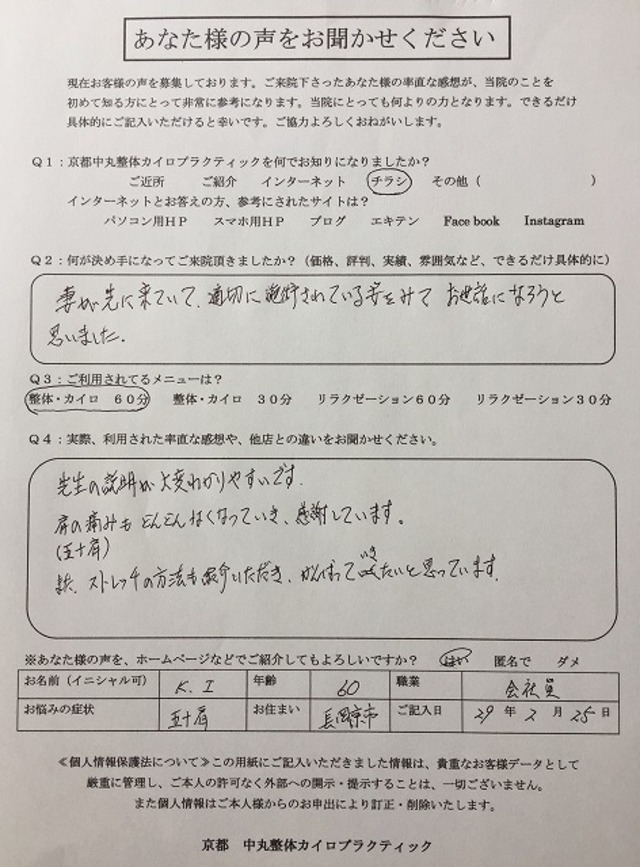 あなた様の声をお聞かせください
現在お客様の声を募集しております。ご来院下さったあなた様の率直な感想が、当院のことを
初めて知る方にとって非常に参考になります。当院にとっても何よりの力となります。できるだけ
具体的にご記入いただけると幸いです。ご協力よろしくおねがいします。
Q1：京都中丸整体カイロプラクティックを何でお知りになりましたか？
ご近所 ご紹介 インターネット チラシ その他（ ）
インターネットとお答えの方、参考にされたサイトは？
パソコン用HP スマホ用HP ブログ エキテン Face book Instagram
Q2：何が決め手になってご来院頂きましたか？（価格、評判、実績、雰囲気など、できるだけ具体的に）
妻が先に来ていて、適切に施術されている姿をみて お世話になろうと
思いました。
Q3：ご利用されてるメニューは？
整体・カイロ 60分 整体・カイロ 30分 リラクゼーション60分 リラクゼーション30分
Q4：実際、利用された率直な感想や、他店との違いをお聞かせください。
先生の説明が大変わかりやすいです。
肩の痛みも どんどんなくなっていき、感謝しています。
（五十肩）
また、ストレッチの方法も紹介いただき、がんばっていきたいと思っています。
※あなた様の声を、ホームページなどでご紹介してもよろしいですか？ はい 匿名で ダメ
お名前（イニシャル可） K.I 年齢 60 職業 会社員
お悩みの症状 五十肩 お住まい 長岡京市 ご記入日 29年2月25日
≪個人情報保護法について≫この用紙にご記入いただきました情報は、貴重なお客様データとして
厳重に管理し、ご本人の許可なく外部への開示・提示することは、一切ございません。
また個人情報はご本人様からのお申出により訂正・削除いたします。
京都 中丸整体カイロプラクティック